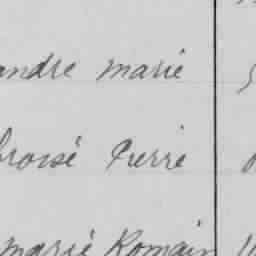 andre Marie
broisé Pierre
Marie Romain